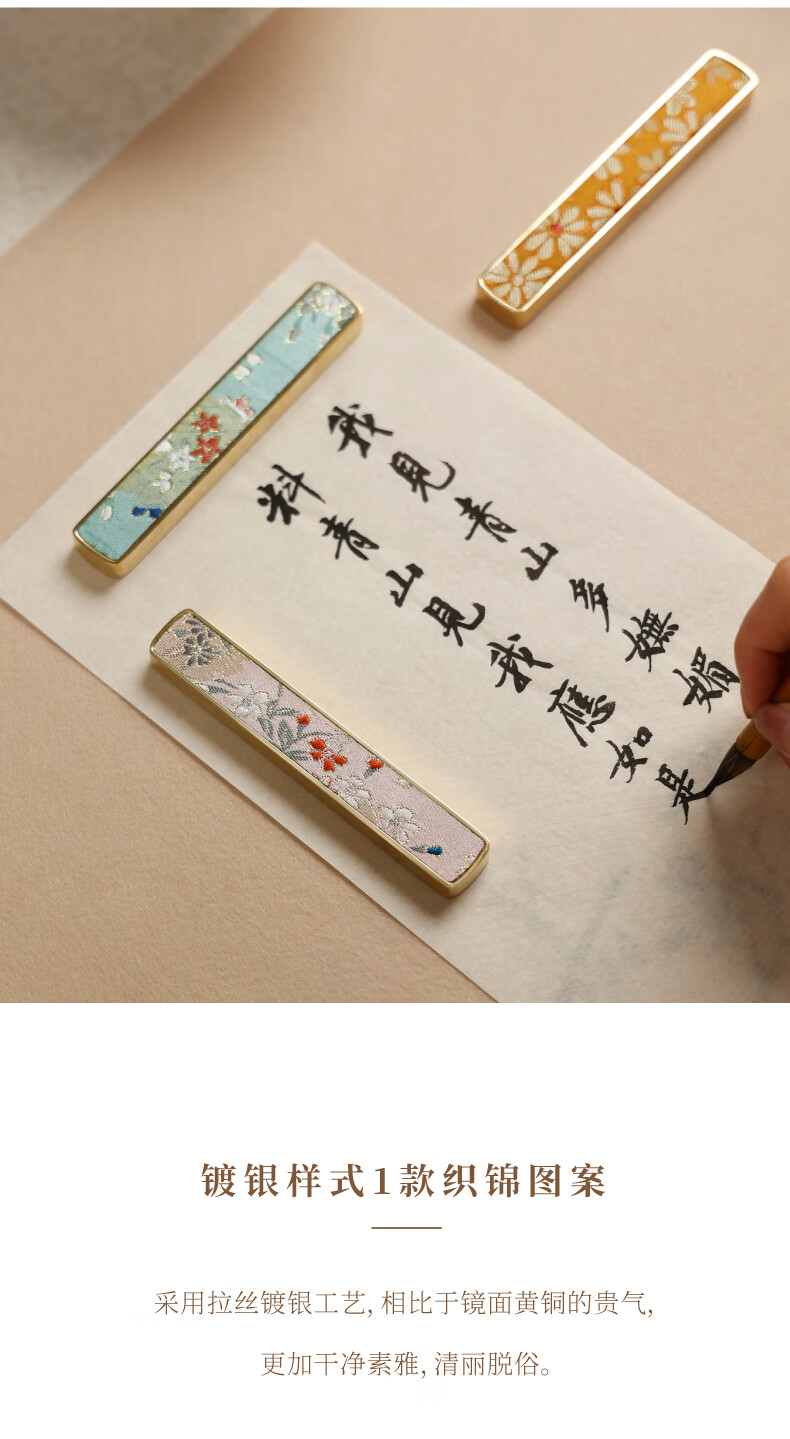 我見青山多嫵媚
料青山見我應如是
镀银样式1款织锦图案
采用拉丝镀银工艺, 相比于镜面黄铜的贵气,
更加干净素雅, 清丽脱俗。